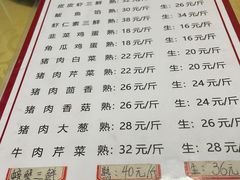 皮皮虾三鲜 熟: 35元/斤
鲅鱼馅 熟: 30元/斤 生: 26元/斤
虾仁素三鲜 熟: 38元/斤 生: 34元/斤
韭菜鸡蛋 熟: 18元/斤 生: 16元/斤
角瓜鸡蛋 熟: 18元/斤 生: 16元/斤
猪肉白菜 熟: 22元/斤 生: 20元/斤
猪肉芹菜 熟: 22元/斤 生: 20元/斤
猪肉茴香 熟: 26元/斤 生: 24元/斤
猪肉香菇 熟: 26元/斤 生: 24元/斤
猪肉大葱 熟: 28元/斤 生: 26元/斤
牛肉芹菜 熟: 32元/斤 生: 28元/斤
螃蟹三鲜 熟: 40元/斤 生: 36元